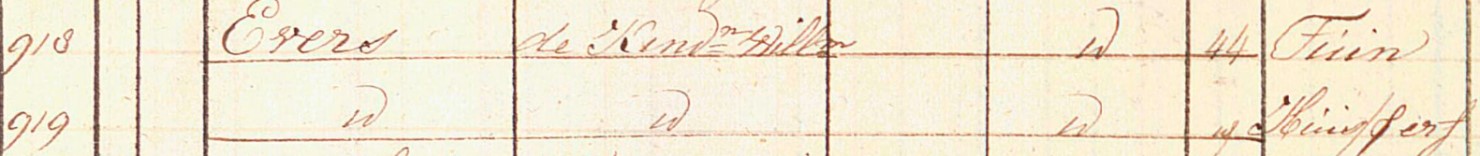 918 Evers de Kindn Willm id 44 Tuin
919 id id id Huis & erf